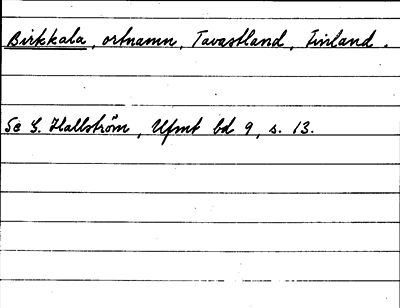 Birkkala, ortnamn, Tavastland, Finland.
Se G. Hallström, Ufmt bd 9, s. 13.